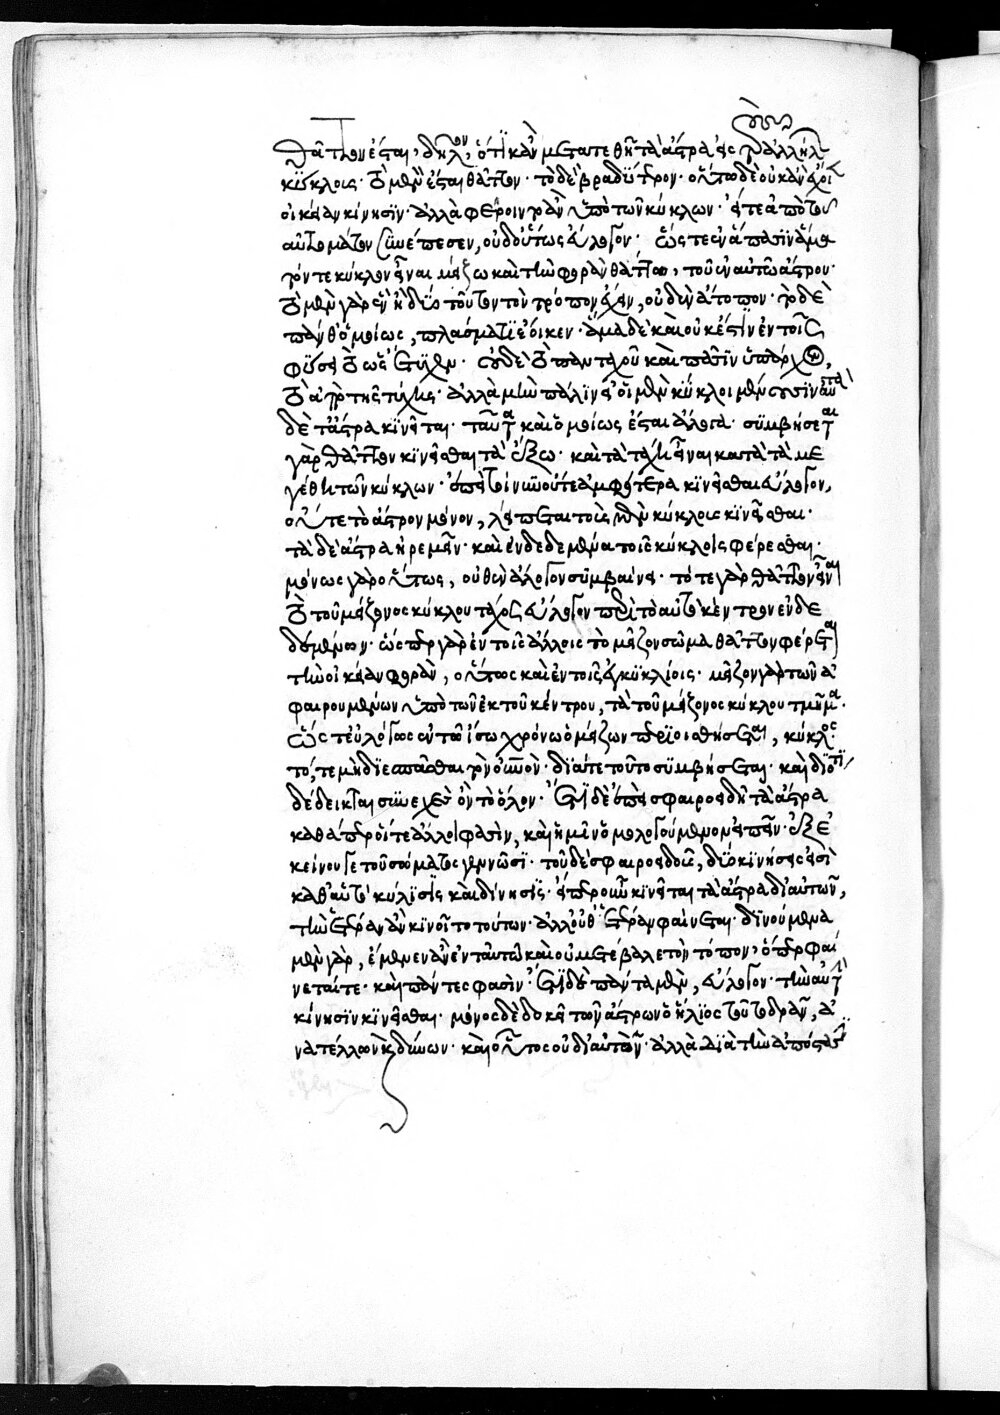 θᾶττον ἔσται, δῆλον, ὅτι κἂν μετατεθῇ τὰ ἄστρα εἰς τοὺς ἀλλήλων
κύκλους· τὸ μὲν ἔσται θᾶττον· τὸ δὲ βραδύτερον· οὕτω δὲ οὐκ ἂν ἔχοι
οἰκείαν κίνησιν· ἀλλὰ φέροιντο ἂν ὑπὸ τῶν κύκλων· εἴτε ἀπὸ τοῦ
αὐτομάτου συνέπεσεν, οὐδ' οὕτως εὔλογον· ὥστε ἐν ἅπασιν ἅμα
τόν τε κύκλον εἶναι μείζω καὶ τὴν φορὰν θάττω, τοῦ ἐν αὐτῷ ἄστρου·
τὸ μὲν γὰρ ἓν ἢ δύο τοῦτον τὸν τρόπον ἔχειν, οὐδὲν ἄτοπον· τὸ δὲ
πάνθ' ὁμοίως, πλάσματι ἔοικεν· ἅμα δὲ καὶ οὐκ ἔστιν ἐν τοῖς
φύσει τὸ ὡς ἔτυχεν· οὐδὲ τὸ πανταχοῦ καὶ πᾶσιν ὑπάρχον,
τὸ ἀπὸ τῆς τύχης· ἀλλὰ μὴν πάλιν εἰ οἱ μὲν κύκλοι μένουσιν αὐτὰ
δὲ τὰ ἄστρα κινεῖται· ταῦτα καὶ ὁμοίως ἔσται ἄλογα· συμβήσεται
γὰρ θᾶττον κινεῖσθαι τὰ ἔξω· καὶ τὰ τάχη εἶναι κατὰ τὰ με
γέθη τῶν κύκλων· ἐπεὶ τοίνυν οὔτε ἀμφότερα κινεῖσθαι εὔλογον,
οὔτε τὸ ἄστρον μόνον, λείπεται τοὺς μὲν κύκλους κινεῖσθαι·
τὰ δὲ ἄστρα ἠρεμεῖν· καὶ ἐνδεδεμένα τοῖς κύκλοις φέρεσθαι·
μόνως γὰρ οὕτως, οὐθὲν ἄλογον συμβαίνει· τό τε γὰρ θᾶττον εἶναι
τὸ τοῦ μείζονος κύκλου τάχος εὔλογον περὶ τὸ αὐτὸ κέντρον ἐνδε
δεμένων· ὥσπερ γὰρ ἐν τοῖς ἄλλοις τὸ μεῖζον σῶμα θᾶττον φέρεται
τὴν οἰκείαν φορὰν, οὕτως καὶ ἐν τοῖς ἐγκυκλίοις· μεῖζον γὰρ τῶν ἀ
φαιρουμένων ὑπὸ τῶν ἐκ τοῦ κέντρου, τὸ τοῦ μείζονος κύκλου τμῆμα·
ὥστ' εὐλόγως ἐν τῷ ἴσῳ χρόνῳ ὁ μείζων περιοισθήσεται, κύκλος·
τό, τε μὴ διεσπᾶσθαι τὸν οὐρανὸν· διά τε τοῦτο συμβήσεται· καὶ διότι
δέδεικται συνεχὲς ὂν τὸ ὅλον· ἔτι δὲ ἐπεὶ σφαιροειδῆ τὰ ἄστρα
καθάπερ οἵ τε ἄλλοι φασὶν, καὶ ἡμῖν ὁμολογούμενον εἰπεῖν· ἐξ ἐ
κείνου γε τοῦ σώματος γεννῶσι· τοῦ δὲ σφαιροειδοῦς, δύο κινήσεις εἰσὶ
καθ' αὑτὸ κύλισις καὶ δίνησις· εἴπερ οὖν κινεῖται τὰ ἄστρα δι' αὑτῶν,
τὴν ἑτέραν ἂν κινοῖτο τούτων· ἀλλ' οὐθ' ἑτέραν φαίνεται· δινούμενα
μὲν γὰρ, ἔμενεν ἂν ἐν ταὐτῷ καὶ οὐ μετέβαλε τὸν τόπον, ὅπερ φαί
νεταί τε· καὶ πάντες φασὶν· ἔτι δὲ πάντα μὲν, εὔλογον· τὴν αὐτὴν
κίνησιν κινεῖσθαι· μόνος δὲ δοκεῖ τῶν ἄστρων ὁ ἥλιος τοῦτο δρᾶν, ἀ
νατέλλων ἢ δύνων· καὶ οὗτος οὐ δι' αὑτὸν· ἀλλὰ διὰ τὴν ἀπόστασιν